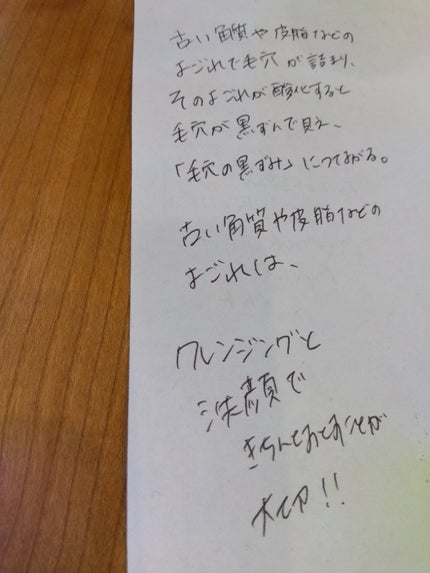 古い角質や皮脂などの
よごれで毛穴が詰まり、
そのよごれが酸化すると
毛穴が黒ずんで見え、
「毛穴の黒ずみ」につながる。
古い角質や皮脂などの
よごれは、
クレンジングと
洗顔で
きちんとおとすことが
大切!!